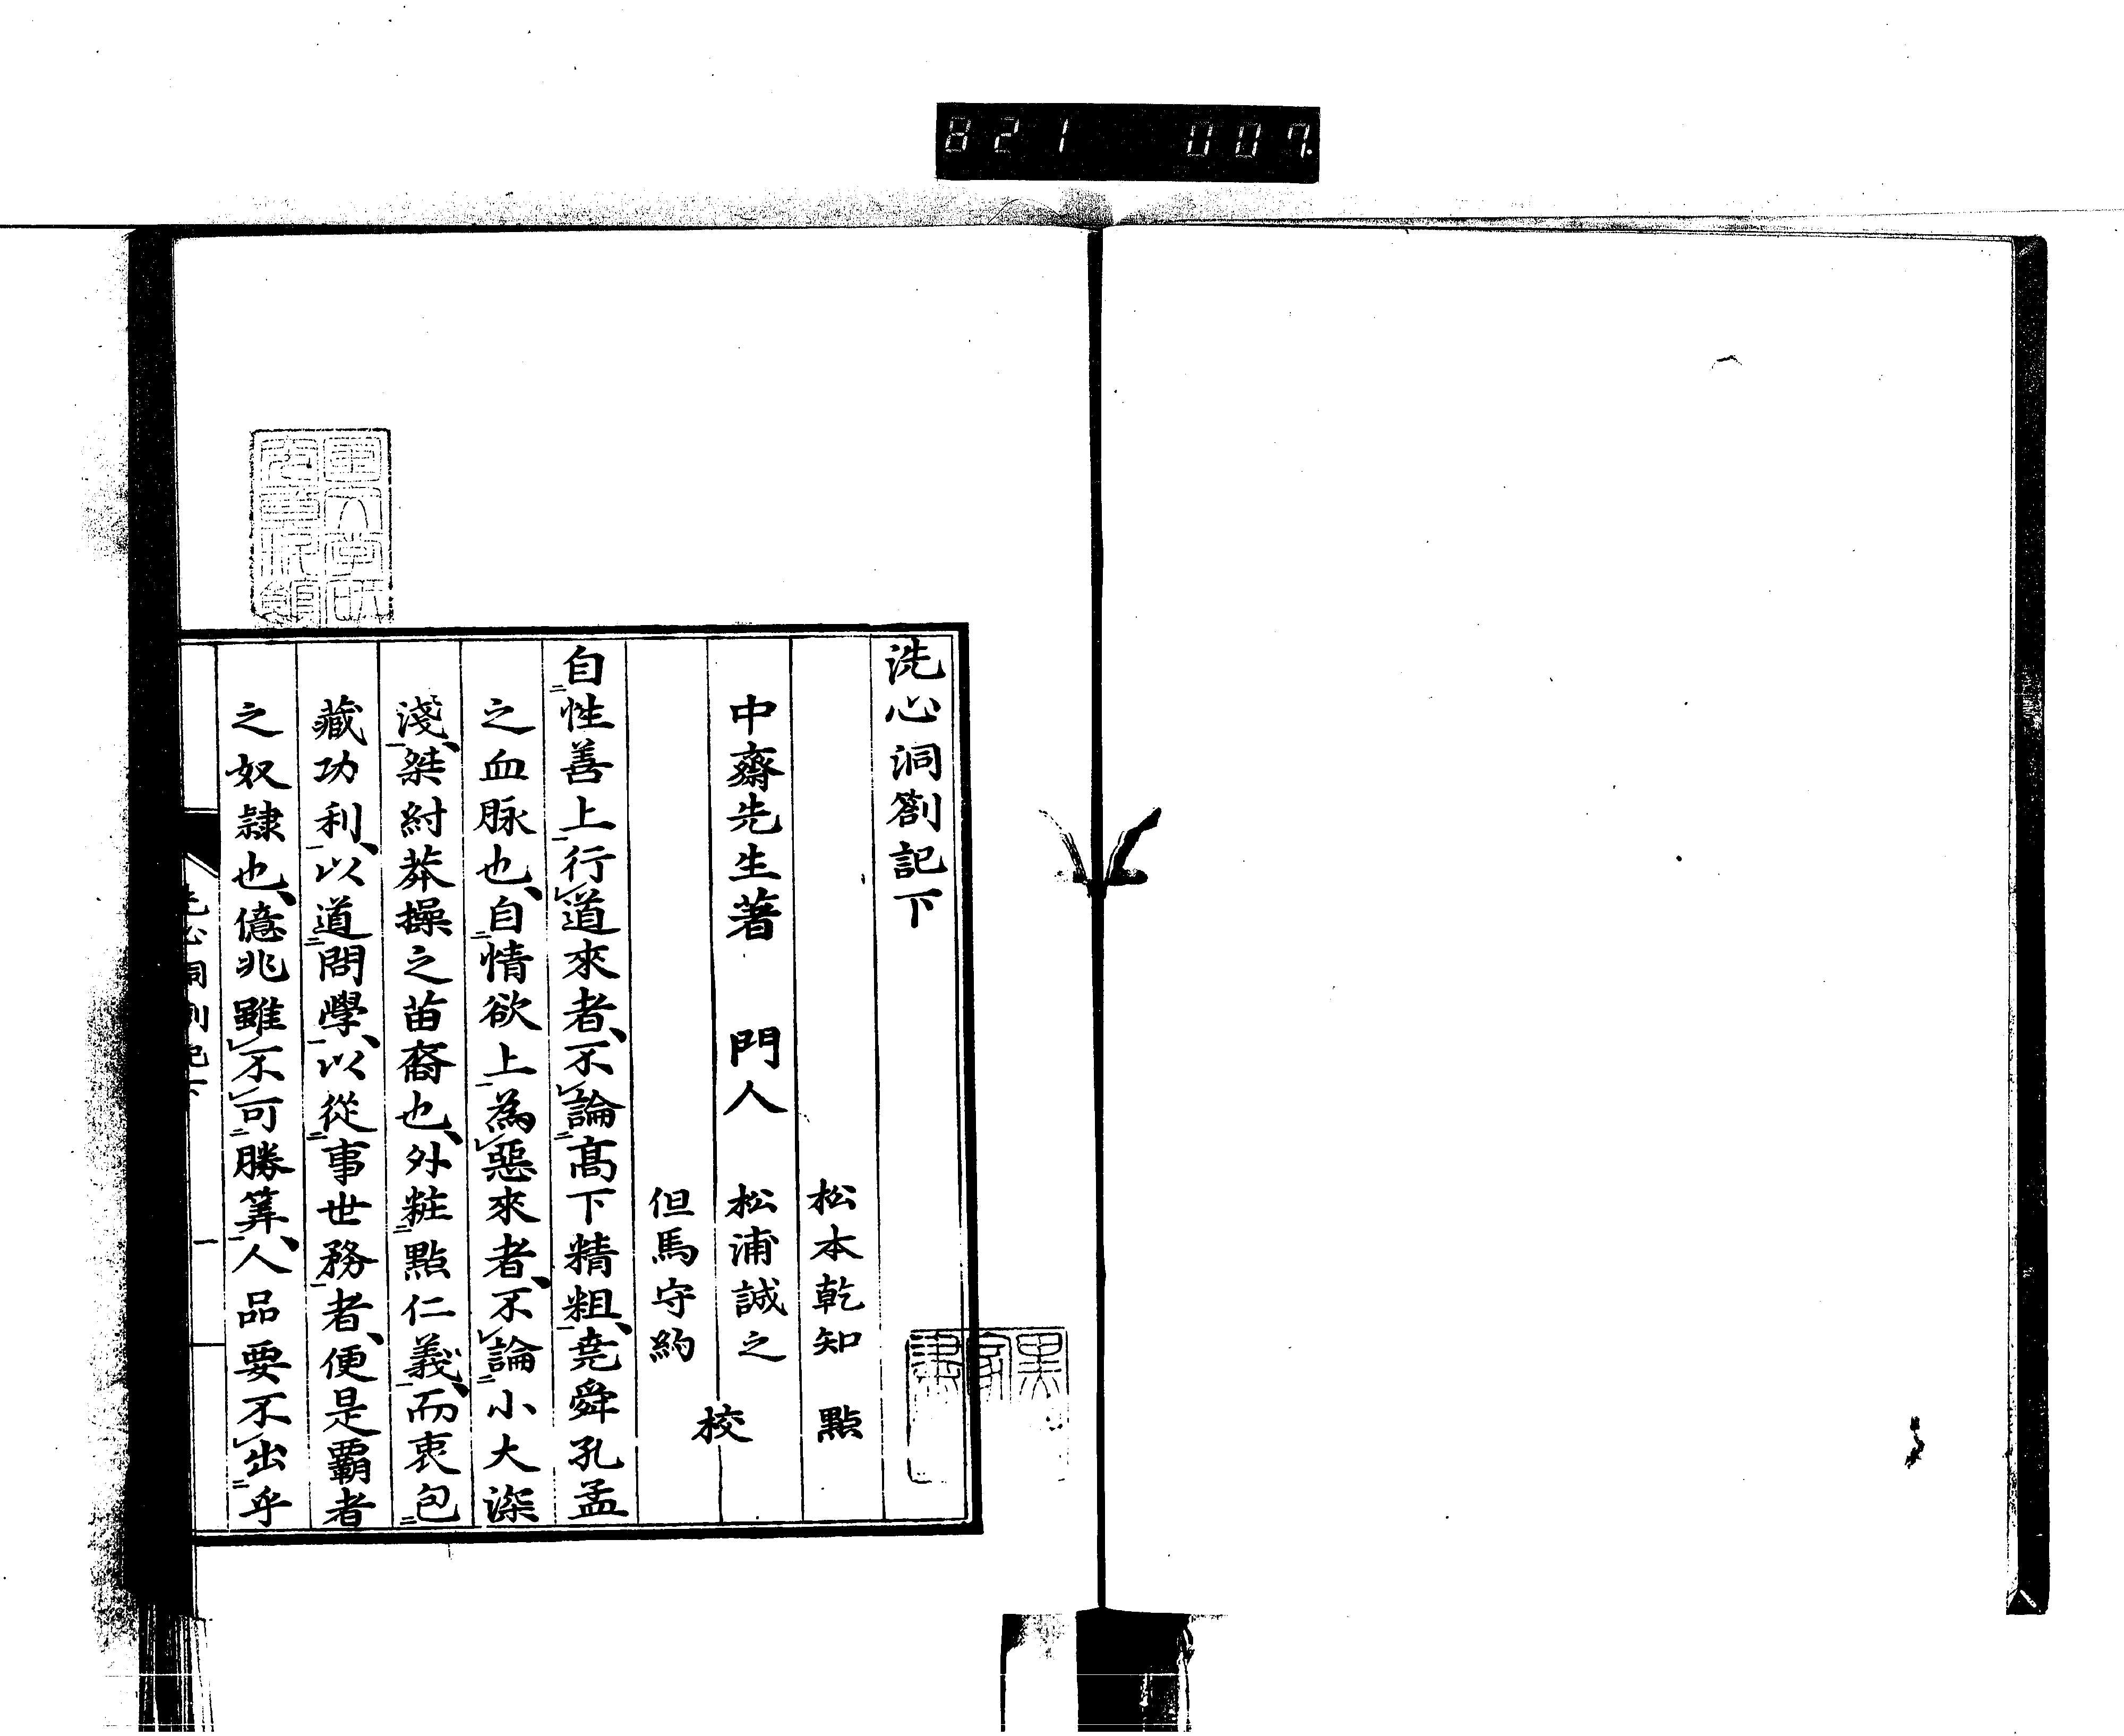 821 007
洗心洞劄記下
松本乾知 點
中齋先生著 門人 松浦誠之
但馬守約
校
自性善上行道來者、不論高下精粗、堯舜孔孟
之血脉也、自情欲上為惡來者、不論小大深
淺、桀紂莽操之苗裔也、外粧點仁義、而衷包
藏功利、以道問學、以從事世務者、便是覇者
之奴隷也、億兆雖不可勝筭、人品要不出乎
洗心洞劄記下
一